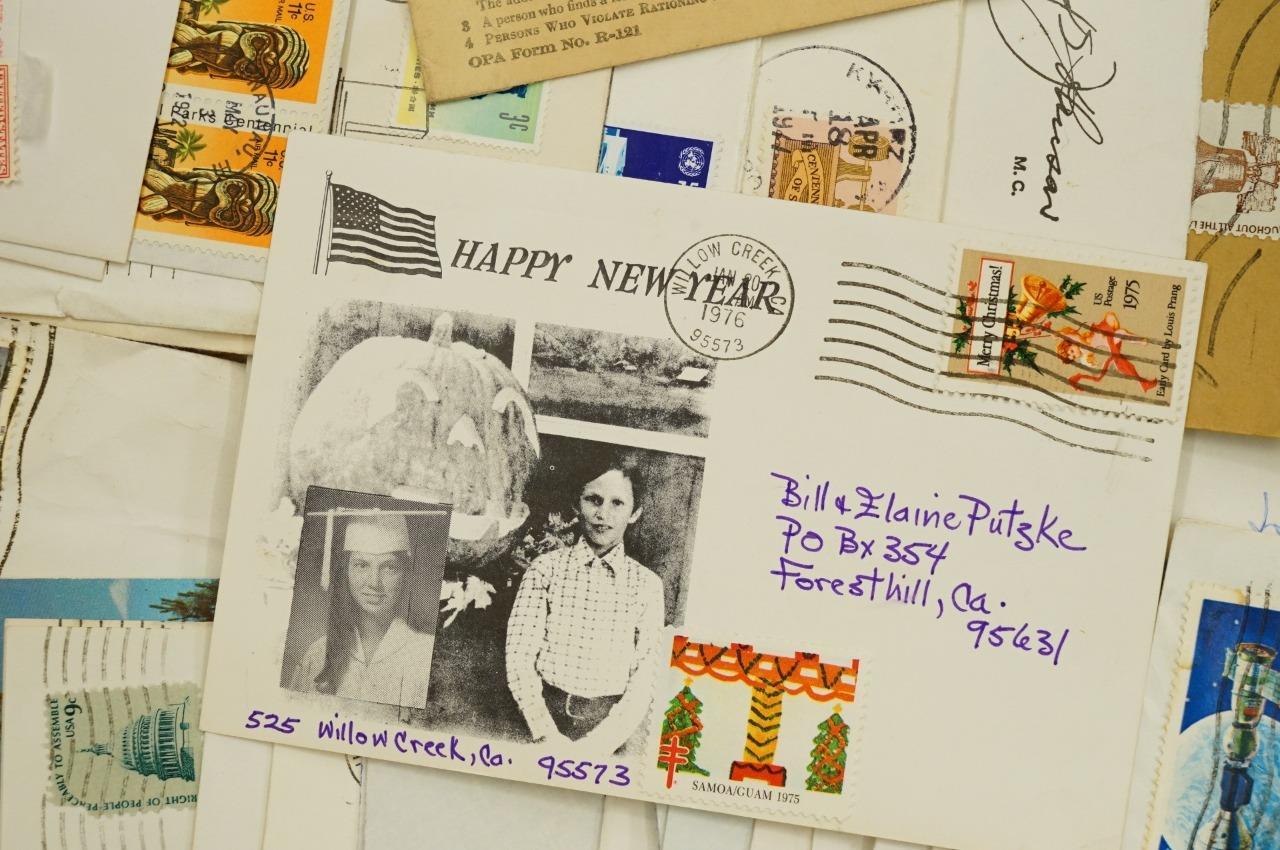 U.S.
11c
11c
arks Centennial
3c
3 A person who finds a
4 PERSONS WHO VIOLATE RATIONING
OPA Form No. R-121
APR
18
CENTENN
OF S
M.C.
HAPPY NEW YEAR
WILLOW CREEK, CA
JAN 20
AM
1976
95573
Merry Christmas!
US
Postage
1975
Early Card by Louis Prang
Bill & Elaine Putzke
PO Bx 354
Foresthill, Ca.
95631
525 Willow Creek, Ca. 95573
SAMOA/GUAM 1975
USA 9c
RIGHT OF PEOPLE PEACEABLY TO ASSEMBLE
UGHOUT ALL THE LA